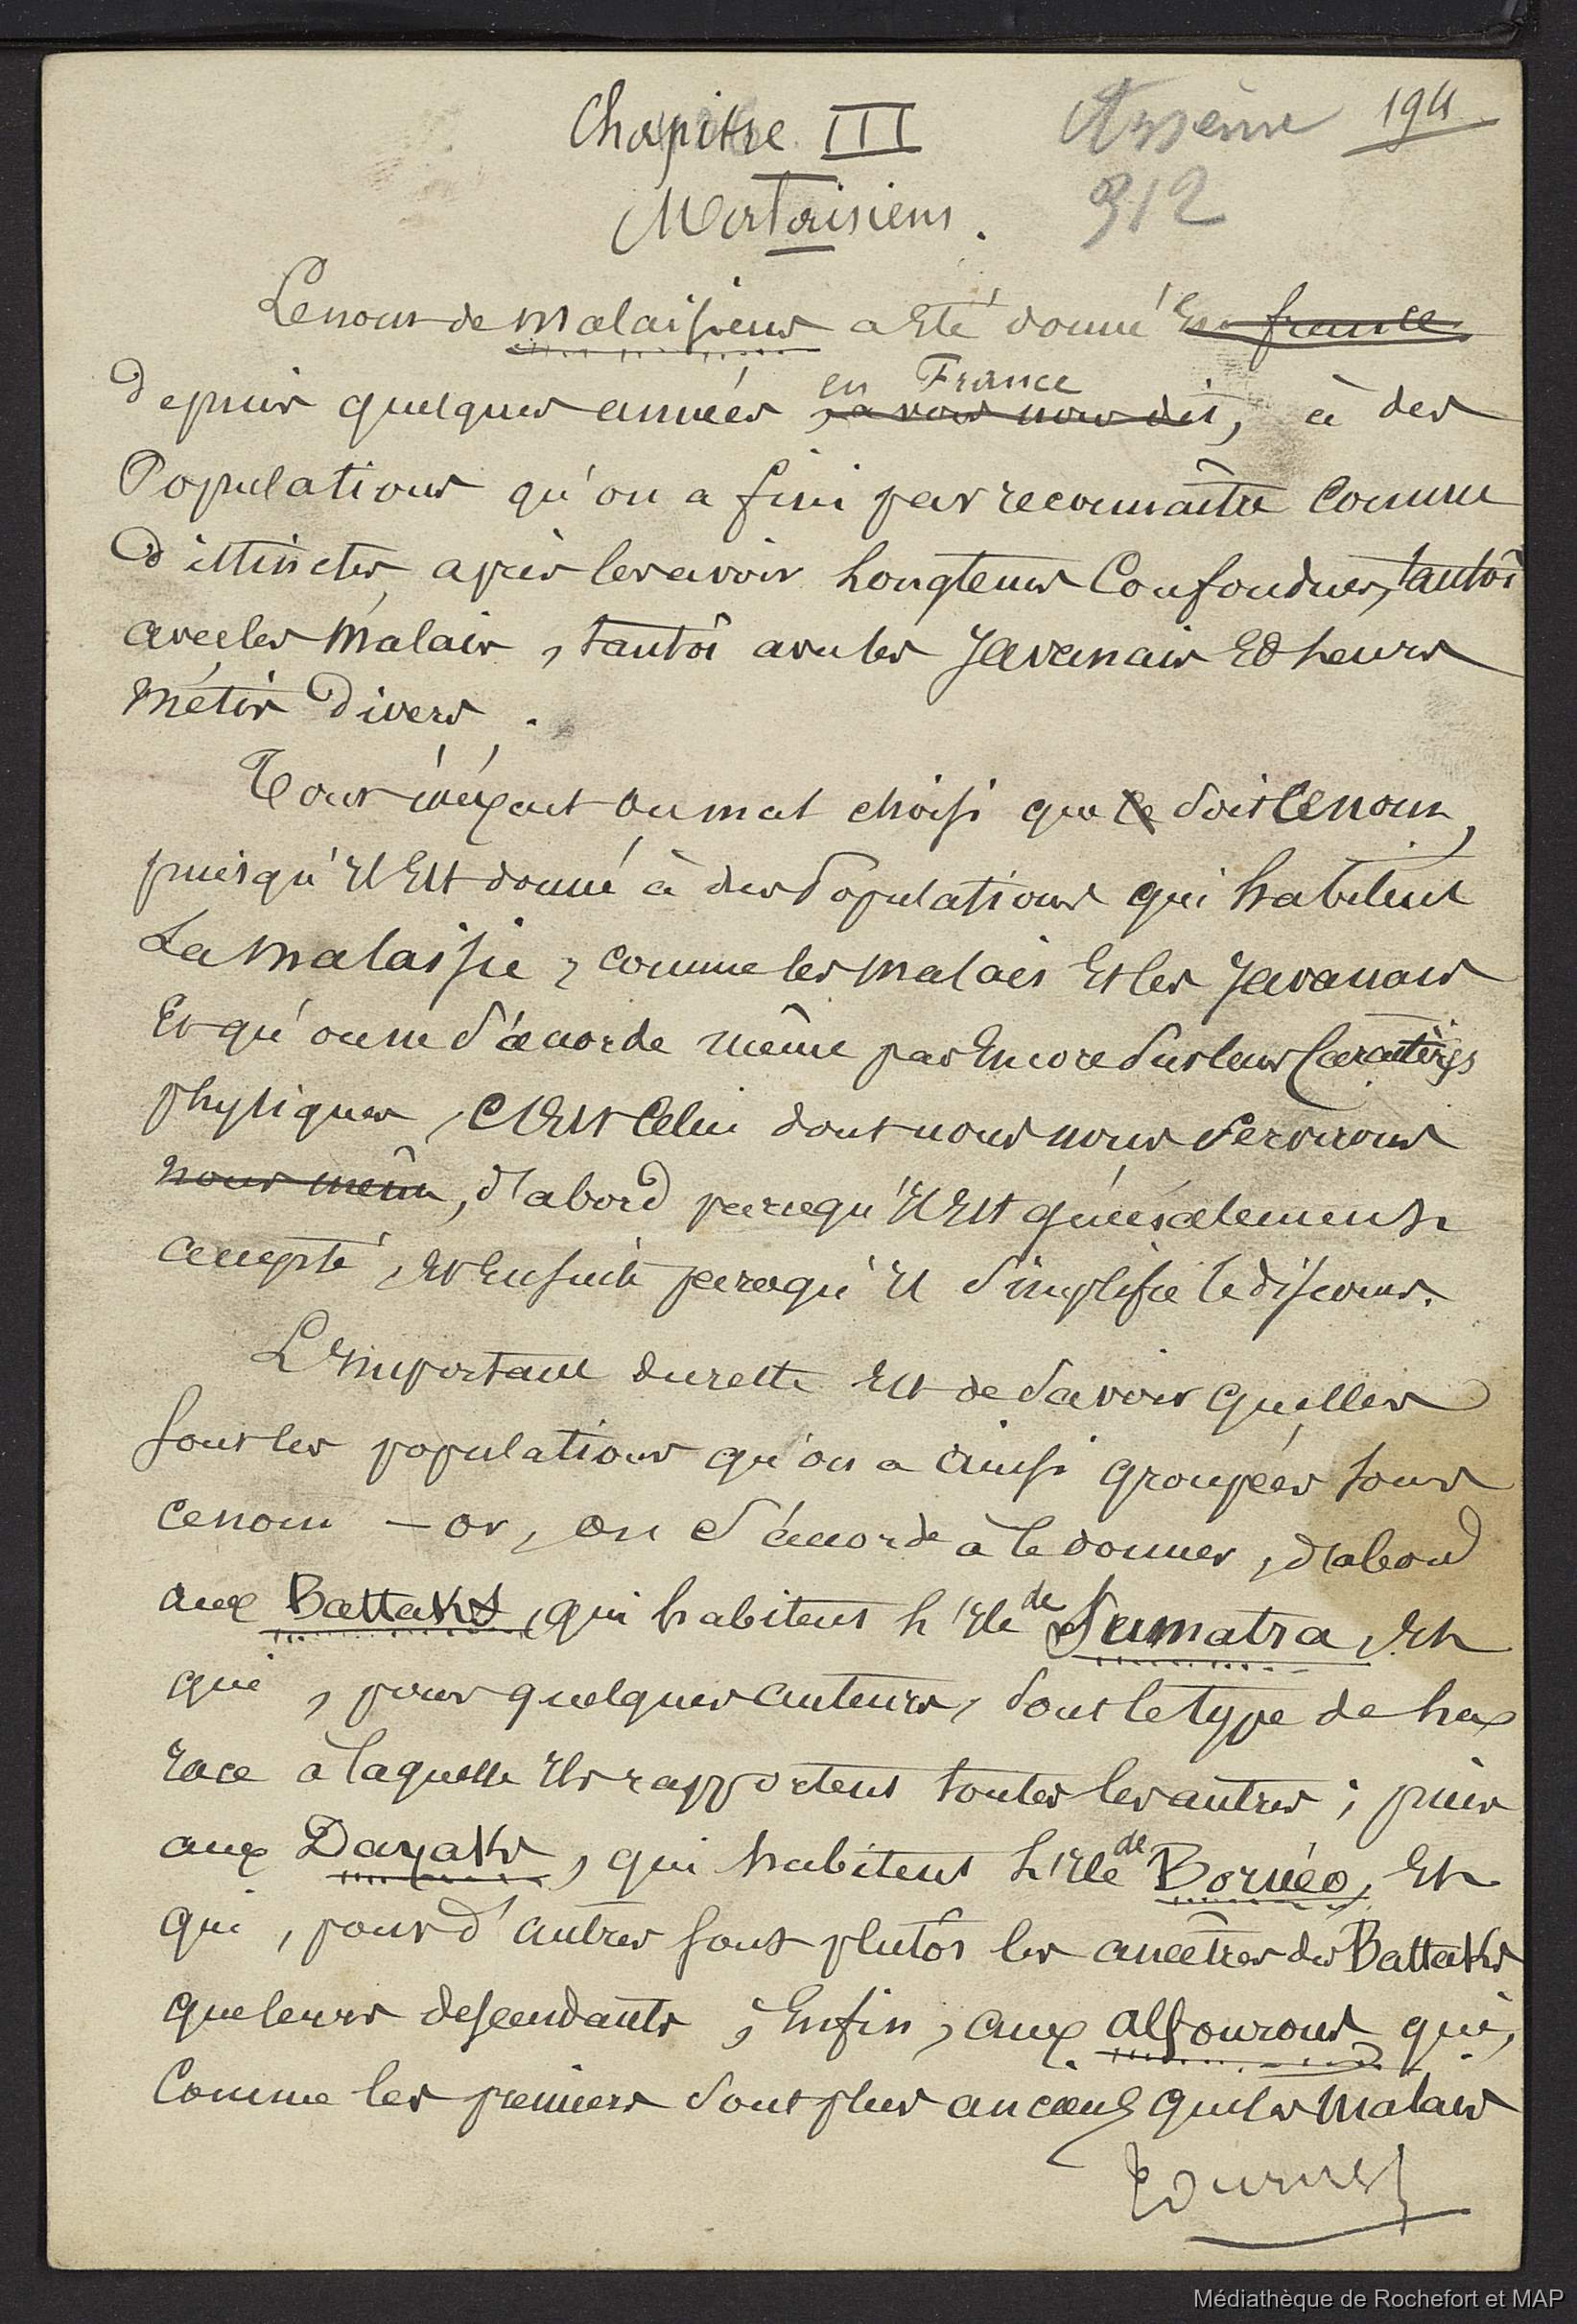 Chapitre III
Arsène 194
912
Malaisiens.
Le nom de malaisiens a été donné en france
en France
depuis quelques années, à des
Populations qu'on a fini par reconnaître comme
distinctes, après les avoir longtems Confondues, tantôt
avec les Malais, tantôt avec les Javanais et leurs
métis divers.
Tout inéxact ou mal choisi que ce soit ce nom,
puisqu'il est donné à des Populations qui habitent
La malaisie, comme les malais et les Javanais
Et qu'on ne s'accorde même pas encore sur leurs Caractères
physiques, c'est Celui dont nous nous servirons
nous même, d'abord parcequ'il est généralement
accepté, et Ensuite parcequ'il simplifie le discours.
L'important du reste est de savoir quelles
sont les populations qu'on a ainsi groupées sous
ce nom – or, on s'accorde à le donner, d'abord
de
aux Battaks, qui habitent l'île Sumatra, et
qui, pour quelques auteurs, sont le type de la
race à laquelle ils rapportent toutes les autres; puis
de
aux Dayaks, qui habitent l'île Bornéo, Et
qui, pour d'autres sont plutôt les ancêtres des Battaks
que leurs descendants; Enfin, aux alfourous qui,
Comme les premiers sont plus anciens que les Malais
Tournez
Médiathèque de Rochefort et MAP